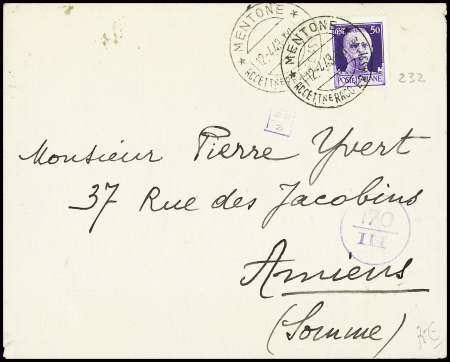 * MENTONE *
12-1.43
ACCETTNE RACC
* MENTONE
12-1.43
ACCETTNE RACC
50
POSTE ITALIANE
232
Monsieur Pierre Yvert
37 Rue des Jacobins
170
III
Amiens
(Somme)